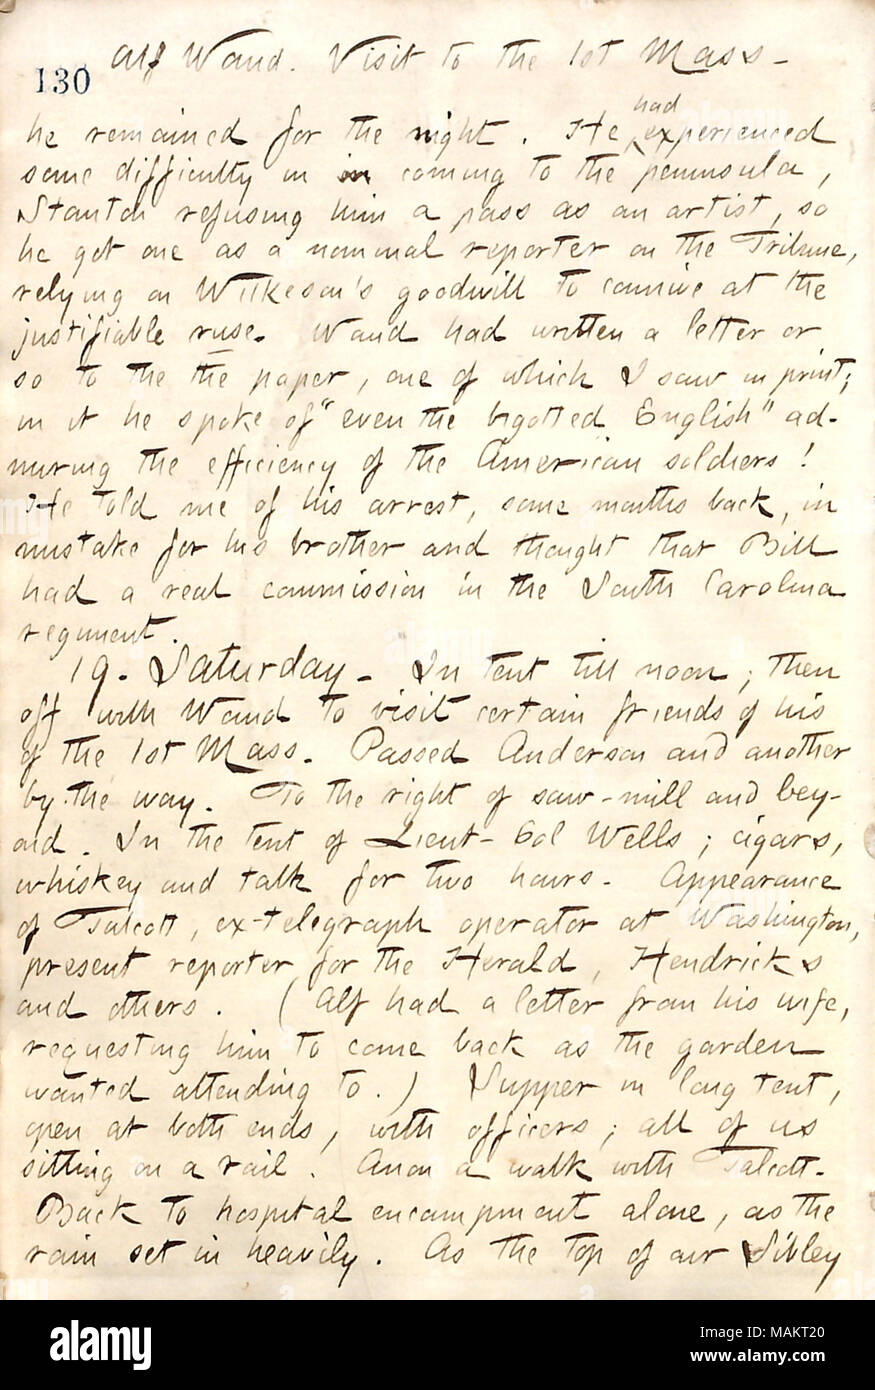 Alf Waud. Visit to the 1st Mass-
130
he remained for the night. He had experienced
some difficulty in in coming to the peninsula,
Stanton refusing him a pass as an artist, so
he got one as a nominal reporter on the Tribune,
relying on Wilkeson's goodwill to connive at the
justifiable ruse. Waud had written a letter or
so to the the paper, one of which I saw in print;
in it he spoke of "even the bigotted English" ad-
miring the efficiency of the American soldiers!
He told me of his arrest, some months back, in
mistake for his brother and thought that Bill
had a real commission in the South Carolina
regiment.
19. Saturday. In tent till noon; then
off with Waud to visit certain friends of his
of the 1st Mass. Passed Anderson and another
by the way. To the right of saw-mill and bey-
ond. In the tent of Lieut-Col Wells; cigars,
whiskey and talk for two hours. Appearance
of Talcott, ex-telegraph operator at Washington,
present reporter for the Herald, Hendricks
and others. (Alf had a letter from his wife,
requesting him to come back as the garden
wanted attending to.) Supper in long tent,
open at both ends, with officers; all of us
sitting on a rail. Anon a walk with Talcott.
Back to hospital encampment alone, as the
rain set in heavily. As the top of our Sibley
alamy
Image ID: MAKT20
www.alamy.com